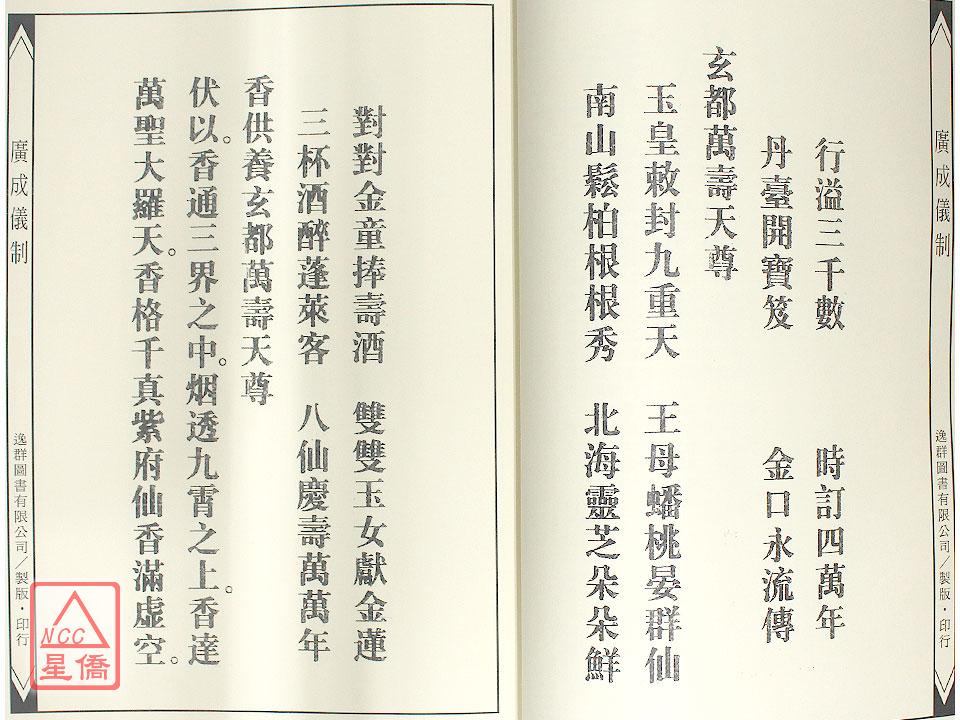 廣成儀制
逸群圖書有限公司／製版・印行
行溢三千數　時訂四萬年
丹臺開寶笈　金口永流傳
玄都萬壽天尊
玉皇敕封九重天　王母蟠桃晏群仙
南山鬆柏根根秀　北海靈芝朵朵鮮
對對金童捧壽酒　雙雙玉女獻金蓮
三杯酒醉蓬萊客　八仙慶壽萬萬年
香供養玄都萬壽天尊
伏以。香通三界之中。烟透九霄之上。香達
萬聖大羅天。香格千真紫府仙香滿虛空。
廣成儀制
逸群圖書有限公司／製版・印行
NCC
星僑